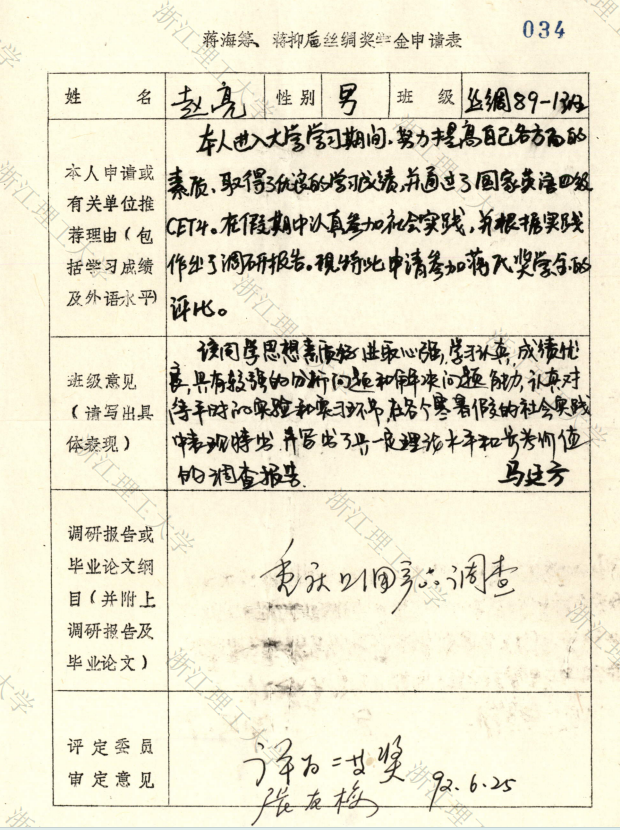 034
蒋海筹、蒋抑卮丝绸奖学金申请表
姓 名 赵亮 性别 男 班 级 丝绸89-1班
本人申请或
有关单位推
荐理由(包
括学习成绩
及外语水平)
本人进入大学学习期间,努力提高自己各方面的
素质,取得了优良的学习成绩,并通过了国家英语四级
CET4。在假期中认真参加社会实践,并根据实践
作出了调研报告。现特此申请参加蒋氏奖学金的
评比。
班级意见
(请写出具
体表现)
该同学思想素质好,进取心强,学习认真,成绩优
良,具有较强的分析问题和解决问题能力,认真对
待平时的实验和实习环节,在各个寒暑假的社会实践
中表现特出,并写出了具一定理论水平和参考价值
的调查报告.
马廷方
调研报告或
毕业论文纲
目(并附上
调研报告及
毕业论文)
调查
评定委员
审定意见
评为二等奖
92.6.25
浙江理工大学